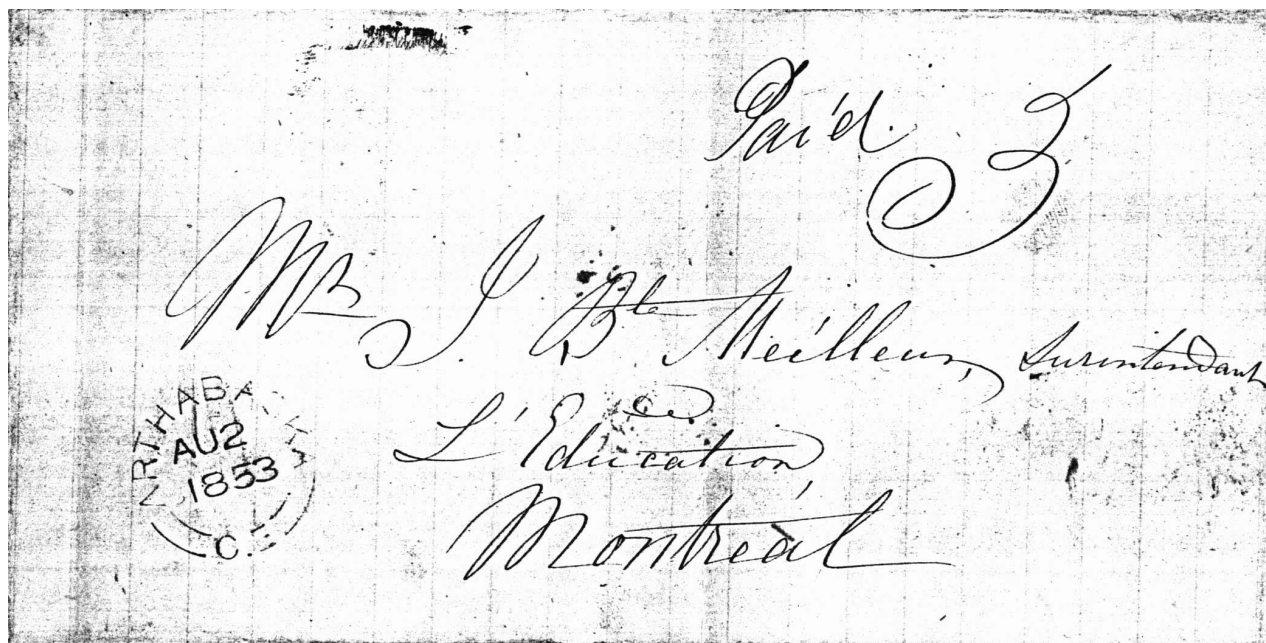 Paid. 3
Mr J. Bte Meilleur, Surintendant
de
L'Education
Montréal
AU 2
1853
C.E.